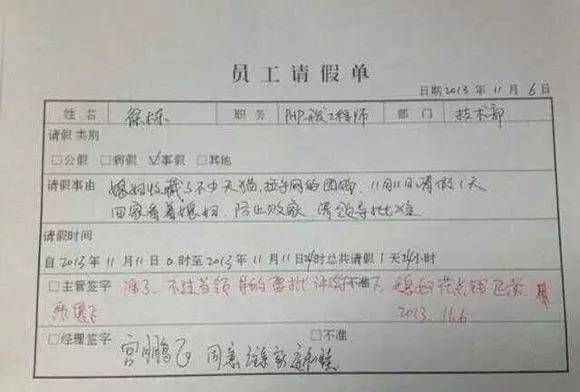 员工请假单
日期2013年11月6日
姓名 徐栋 职务 PHP开发工程师 部门 技术部
请假类别
□公假 □病假 √事假 □其他
请假事由 媳妇收藏了不少天猫、拉手网的团购,11月11日请假1天
回家看着媳妇,防止败家 请领导批准
请假时间
自2013年11月11日0时至2013年11月11日24时总共请假1天24小时
□主管签字 准了,不过当领导的要批评 □不准 媳妇花点钱
2013.11.6
□经理签字 宫鹏飞 同意 □不准